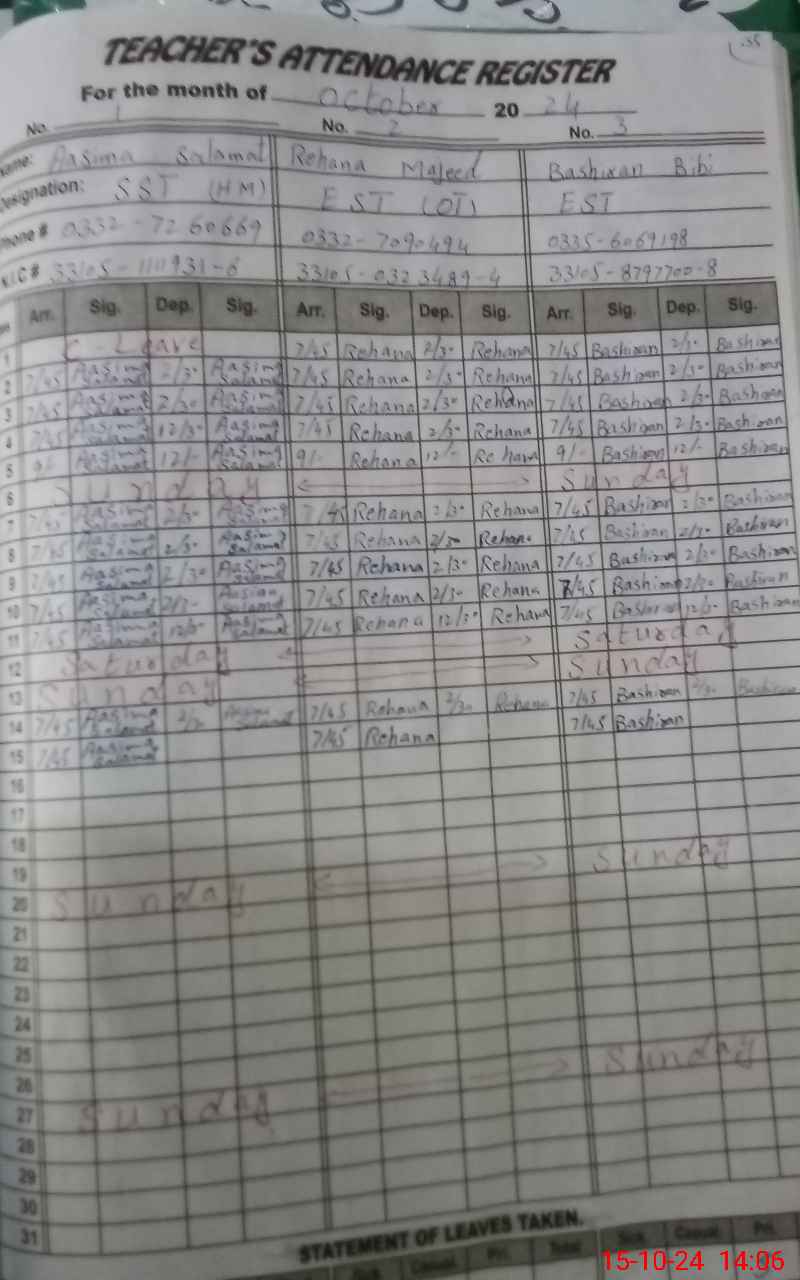 TEACHER'S ATTENDANCE REGISTER
For the month of October 20 24
No. 1 No. 2 No. 3
Name: Aasima Salamat Rehana Majeed Bashiran Bibi
Designation: SST (HM) EST (OT) EST
Phone # 0332-7260669 0332-7090494 0335-6069198
N.I.C # 33105-110931-6 33105-0323489-4 33105-8797700-8
Arr. Sig. Dep. Sig. Arr. Sig. Dep. Sig. Arr. Sig. Dep. Sig.
1 C-Leave 7/45 Rehana 2/30 Rehana 7/45 Bashiran 2/30 Bashiran
2 7/45 Aasima Salamat 2/30 Aasima Salamat 7/45 Rehana 2/30 Rehana 7/45 Bashiran 2/30 Bashiran
3 7/45 Aasima Salamat 2/30 Aasima Salamat 7/45 Rehana 2/30 Rehana 7/45 Bashiran 2/30 Bashiran
4 7/45 Aasima Salamat 12/30 Aasima Salamat 7/45 Rehana 2/30 Rehana 7/45 Bashiran 2/30 Bashiran
5 9/- Aasima Salamat 12/- Aasima Salamat 9/- Rehana 12/- Rehana 9/- Bashiran 12/- Bashiran
6 Sunday Sunday
7 7/45 Aasima Salamat 2/30 Aasima Salamat 7/45 Rehana 2/30 Rehana 7/45 Bashiran 2/30 Bashiran
8 7/45 Aasima Salamat 2/30 Aasima Salamat 7/45 Rehana 2/30 Rehana 7/45 Bashiran 2/30 Bashiran
9 7/45 Aasima Salamat 2/30 Aasima Salamat 7/45 Rehana 2/30 Rehana 7/45 Bashiran 2/30 Bashiran
10 7/45 Aasima Salamat 2/30 Aasima Salamat 7/45 Rehana 2/30 Rehana 7/45 Bashiran 2/30 Bashiran
11 7/45 Aasima Salamat 12/30 Aasima Salamat 7/45 Rehana 12/30 Rehana 7/45 Bashiran 12/30 Bashiran
12 Saturday Saturday
13 Sunday Sunday
14 7/45 Aasima Salamat 2/30 Aasima Salamat 7/45 Rehana 2/30 Rehana 7/45 Bashiran 2/30 Bashiran
15 7/45 Aasima Salamat 7/45 Rehana 7/45 Bashiran
16
17
18
19
20 Sunday Sunday
21
22
23
24
25
26
27 Sunday Sunday
28
29
30
31
STATEMENT OF LEAVES TAKEN.
Sick Casual Pri. Total Sick Casual Pri.
15-10-24 14:06